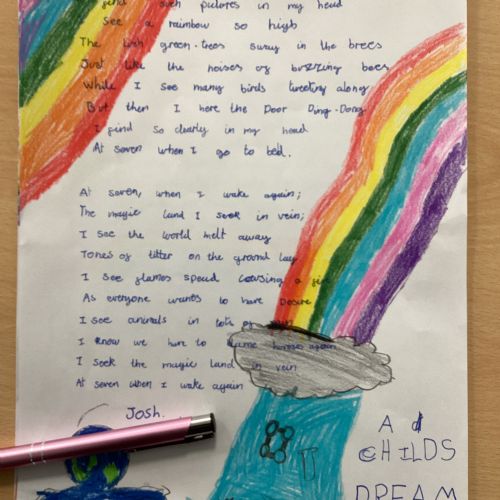 such pictures in my head
I see a rainbow so high
The lush green-trees sway in the brees
Just like the noises of buzzing bees
While I see many birds tweeting along
But then I here the Door Ding-Dong
I find so clearly in my head
At seven when I go to bed.
At seven, when I wake again;
The magic land I seek in vein;
I see the world melt away
Tones of litter on the ground lay
I see flames spead cousing a fire
As everyone wants to have Desire
I see animals in lots of
I know we have to homes again
I seek the magic land in vein
At seven when I wake again
Josh.
A
CHILDS
DREAM